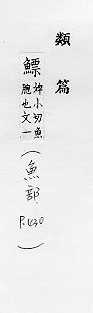 類篇
鰾婢小切魚
胞也文一
(魚部 P.430)